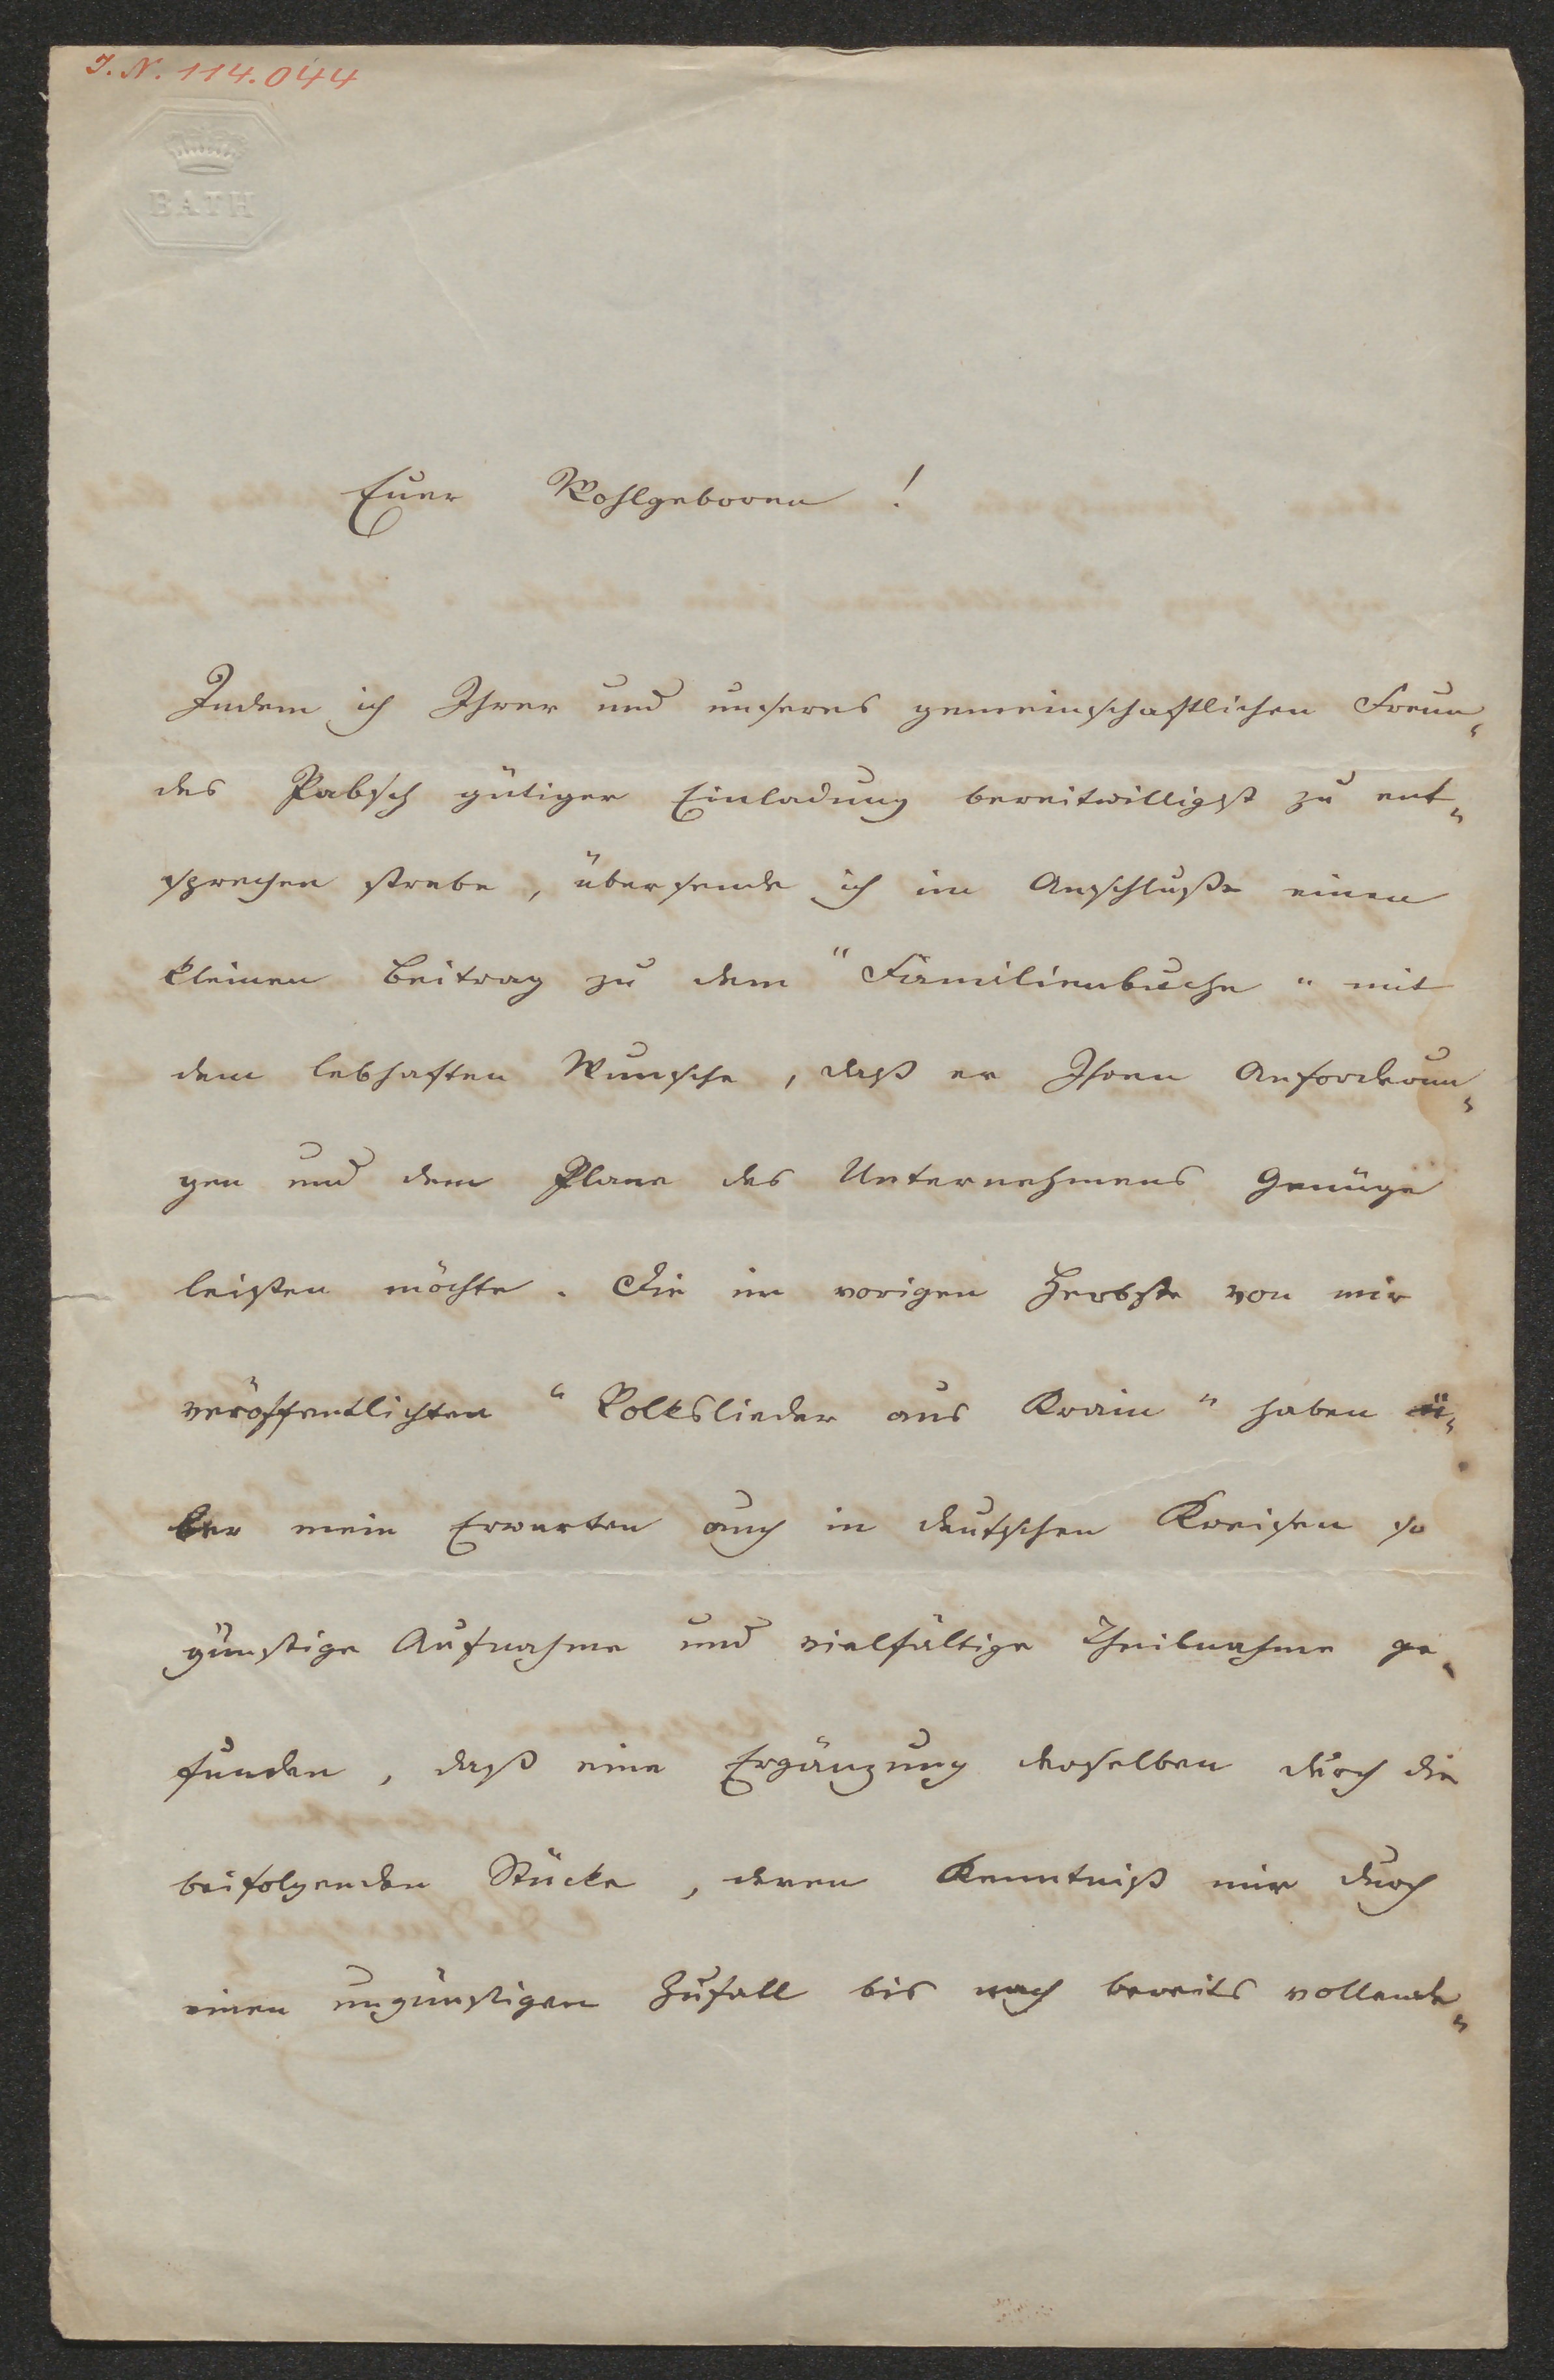 I. N. 114.044
BATH
Euer Wohlgeboren!
Indem ich Ihrer und unseres gemeinschaftlichen Freun„
des Pabsch gütiger Einladung bereitwilligst zu ent„
sprechen strebe, übersende ich im Anschluße einen
kleinen Beitrag zu dem "Familienbuche" mit
dem lebhaften Wunsche, daß er Ihren Anforderun„
gen und dem Plane des Unternehmens Genüge
leisten möchte. Die im vorigen Herbste von mir
veröffentlichten "Volkslieder aus Krain" haben ü„
ber mein Erwarten auch in deutschen Kreisen so
günstige Aufnahme und vielfältige Theilnahme ge„
funden, daß eine Ergänzung derselben durch die
beifolgenden Stücke, deren Kenntniß mir durch
einen ungünstigen Zufall bis nach bereits vollende„